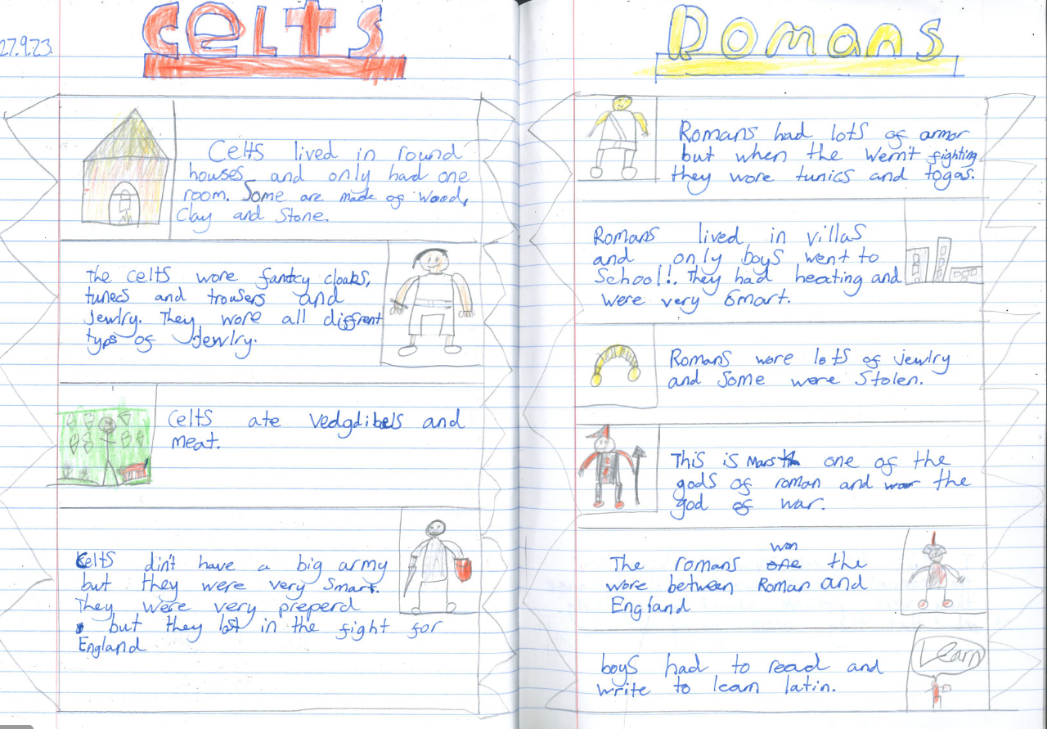 27.9.23.
Celts
Celts lived in round
houses and only had one
room. Some are made of wood,
Clay and Stone.
The Celts wore fantcy cloaks,
tunecs and trousers and
Jewlry. They wore all diffrent
typs of Jewlry.
Celts ate vedgdibels and
meat.
Celts din't have a big army
but they were very Smart.
They were very preperd
but they lost in the fight for
England
Romans
Romans had lots of armor
but when the wern't fighting
they wore tunics and togas.
Romans lived in villas
and only boys went to
School!!. They had heating and
were very Smart.
Romans wore lots of Jewlry
and Some were Stolen.
This is Mars one of the
gods of roman and the
god of war.
The romans won the
wore between Roman and
England
boys had to read and
write to learn latin.
Learn